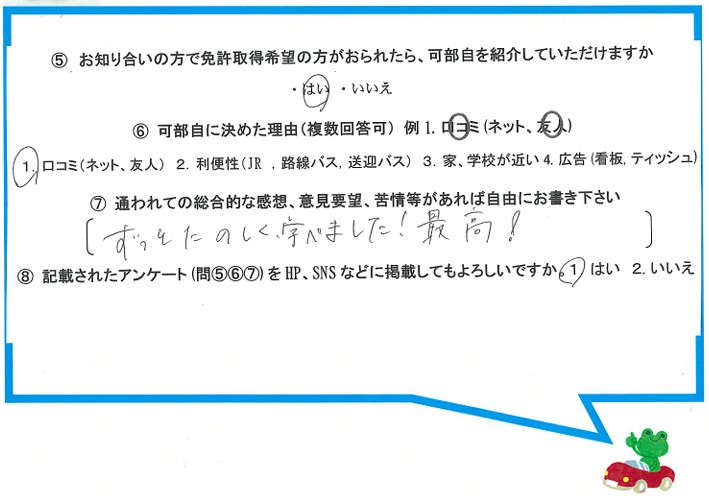 ⑤ お知り合いの方で免許取得希望の方がおられたら、可部自を紹介していただけますか
・はい ・いいえ
⑥ 可部自に決めた理由（複数回答可） 例 1. 口コミ(ネット、友人)
1. 口コミ(ネット、友人) 2. 利便性(JR , 路線バス, 送迎バス) 3. 家、学校が近い 4. 広告(看板, ティッシュ)
⑦ 通われての総合的な感想、意見要望、苦情等があれば自由にお書き下さい
[ずっとたのしく学べました！最高！]
⑧ 記載されたアンケート(問⑤⑥⑦)をHP、SNSなどに掲載してもよろしいですか。1 はい 2. いいえ